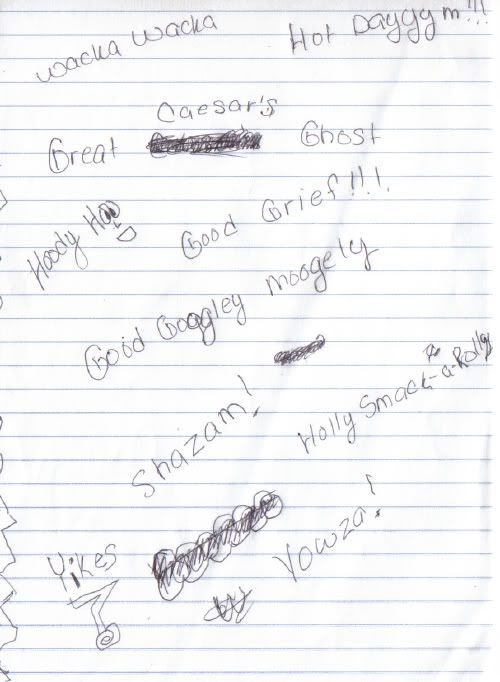 wacka wacka
Hot Dayggm!!!
Caesar's
Great Ghost
Hoody Hoo
Good Grief!!!
Good Googley moogely
Shazam!
Holly Smack-a-Rolly
Yikes
Yowza!